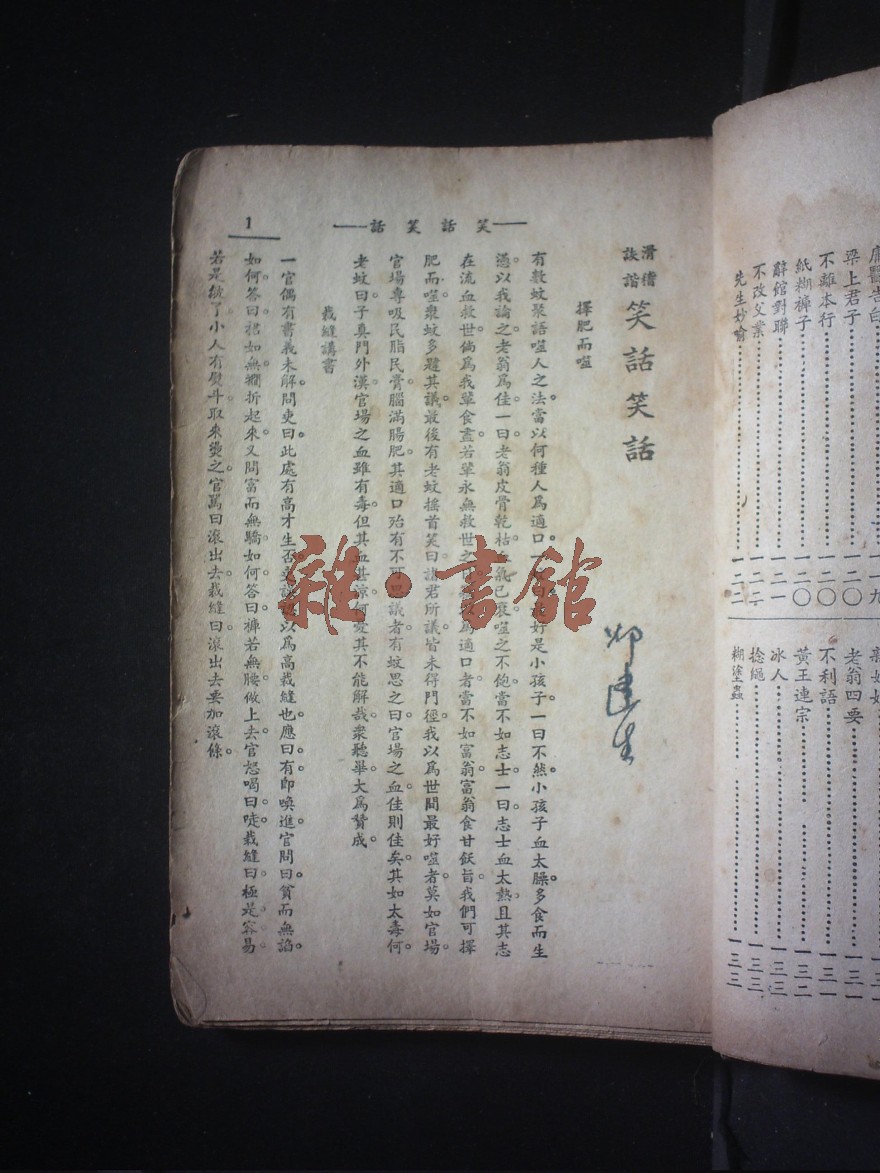 廬醫告白
梁上君子……一二〇
不離本行……一二〇
紙糊褲子……一二〇
辭館對聯……一二一
不改父業……一二二
先生妙喻……一二二
老翁四要……一三一
不利語……一三一
黃王連宗……一三二
冰人……一三三
捻繩……一三三
糊塗蟲……一三三
滑稽詼諧 笑話笑話
擇肥而噬
有數蚊聚語噬人之法。當以何種人為適口。好是小孩子。一曰不然。小孩子血太臊。多食而生
憑。以我論之。老翁為佳。一曰老翁皮骨乾枯。已衰。噬之不飽。當不如志士。一曰志士血太熱。且其志
在流血救世。倘為我輩食盡。若輩永無救世之 為適口者。當不如富翁。富翁食甘飫旨。我們可擇
肥而噬。衆蚊多題其議。最後有老蚊搖首笑曰。諸君所議。皆未得門徑。我以為世間最好噬者。莫如官場。
官場專吸民脂民膏。腦滿腸肥。其適口殆有不可思議者。有蚊思之曰。官場之血。佳則佳矣。其如太毒何。
老蚊曰。子真門外漢。官場之血雖有毒。但其血甚涼。何憂其不能解哉。衆聽畢。大為贊成。
裁縫講書
一官偶有書義未解。問吏曰。此處有高才生否。吏 以為高裁縫也。應曰有。即喚進。官問曰。貧而無諂。
如何。答曰。裙如無襇。折起來。又問富而無驕如何。答曰。褲若無腰。做上去。官怒喝曰。唗。裁縫曰。極是容易。
若是皺了。小人有熨斗。取來燙之。官罵曰。滾出去。裁縫曰。滾出去。要加滾條。
笑話笑話
1
雜·書館